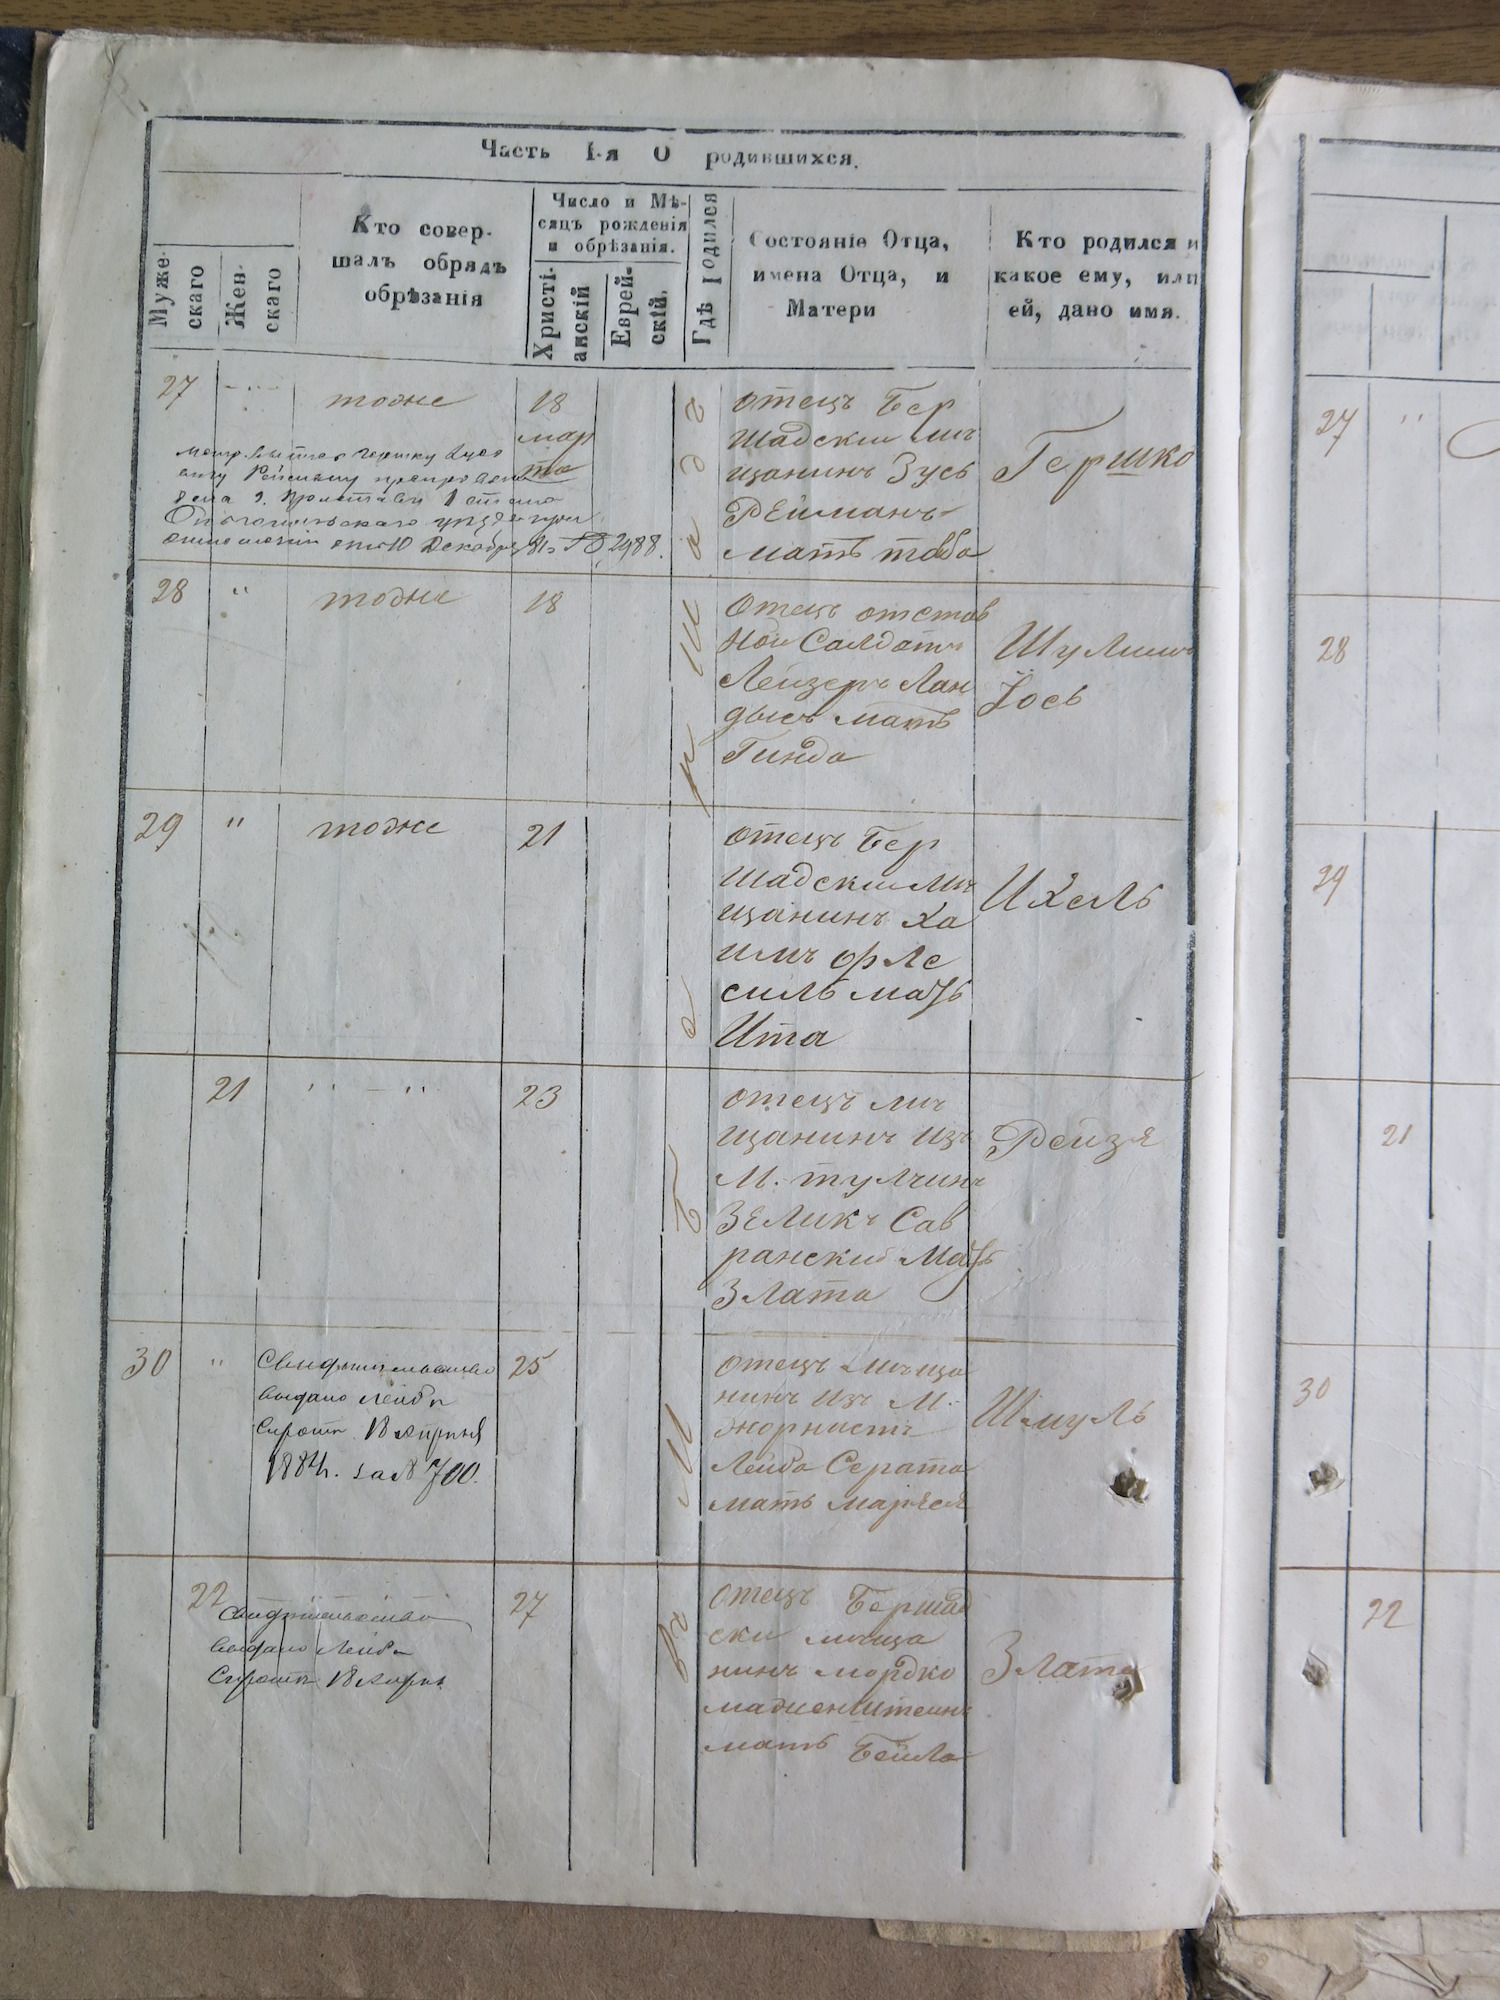 Часть I-я О родившихся.
Муже-
скаго
Жен-
скаго
Кто совер-
шалъ обрядъ
обрѣзанія
Число и Мѣ-
сяцъ рожденія
и обрѣзанія.
Христі-
анскій
Еврей-
скій.
Гдѣ родился
Состояніе Отца,
имена Отца, и
Матери
Кто родился и
какое ему, или
ей, дано имя.
27
тоже
18
мар
та
отецъ Бер
шадскии мѣ
щанинъ Зусь
Рейманъ
мать тоба
Гершко
28
"
тоже
18
отецъ отстав
ной Солдатъ
Лейзеръ Лан
мать
Гинда
Шулимъ
Іось
29
"
тоже
21
отецъ Бер
шадскии мѣ
щанинъ Ха
имъ
мать
Ита
Ихель
21
" — "
23
отецъ мѣ
щанинъ изъ
М. тулчинъ
Зеликъ Сав
ранский мать
Злата
Рейзя
30
"
Свидѣтельство
выдано Лейбѣ
18 апрѣля
1884. за № 700.
25
отецъ мѣща
нинъ изъ М.
Лейба Серота
мать
Шмуль
22
Свидѣтельство
выдано Лейбѣ
18 апрѣ
27
отецъ Бершад
ски мѣща
нинъ мордко
мать Бейла
Злата
въ М Б е р ш а д ѣ
27
"
28
29
21
30
22